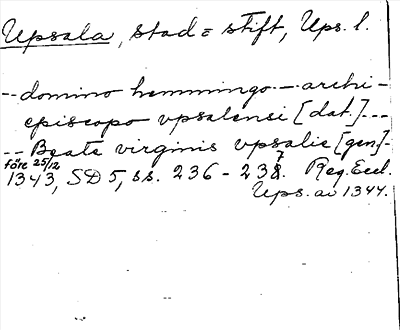 Upsala, stad = stift, Ups. l.
-- domino hemmingo -- archi-
episcopo vpsalensi [dat.] ---
-- Beate virginis vpsalie [gen.] -
före 25/12
1343, SD 5, ss. 236 - 238. Reg. Eccl.
7
Ups. av 1344.